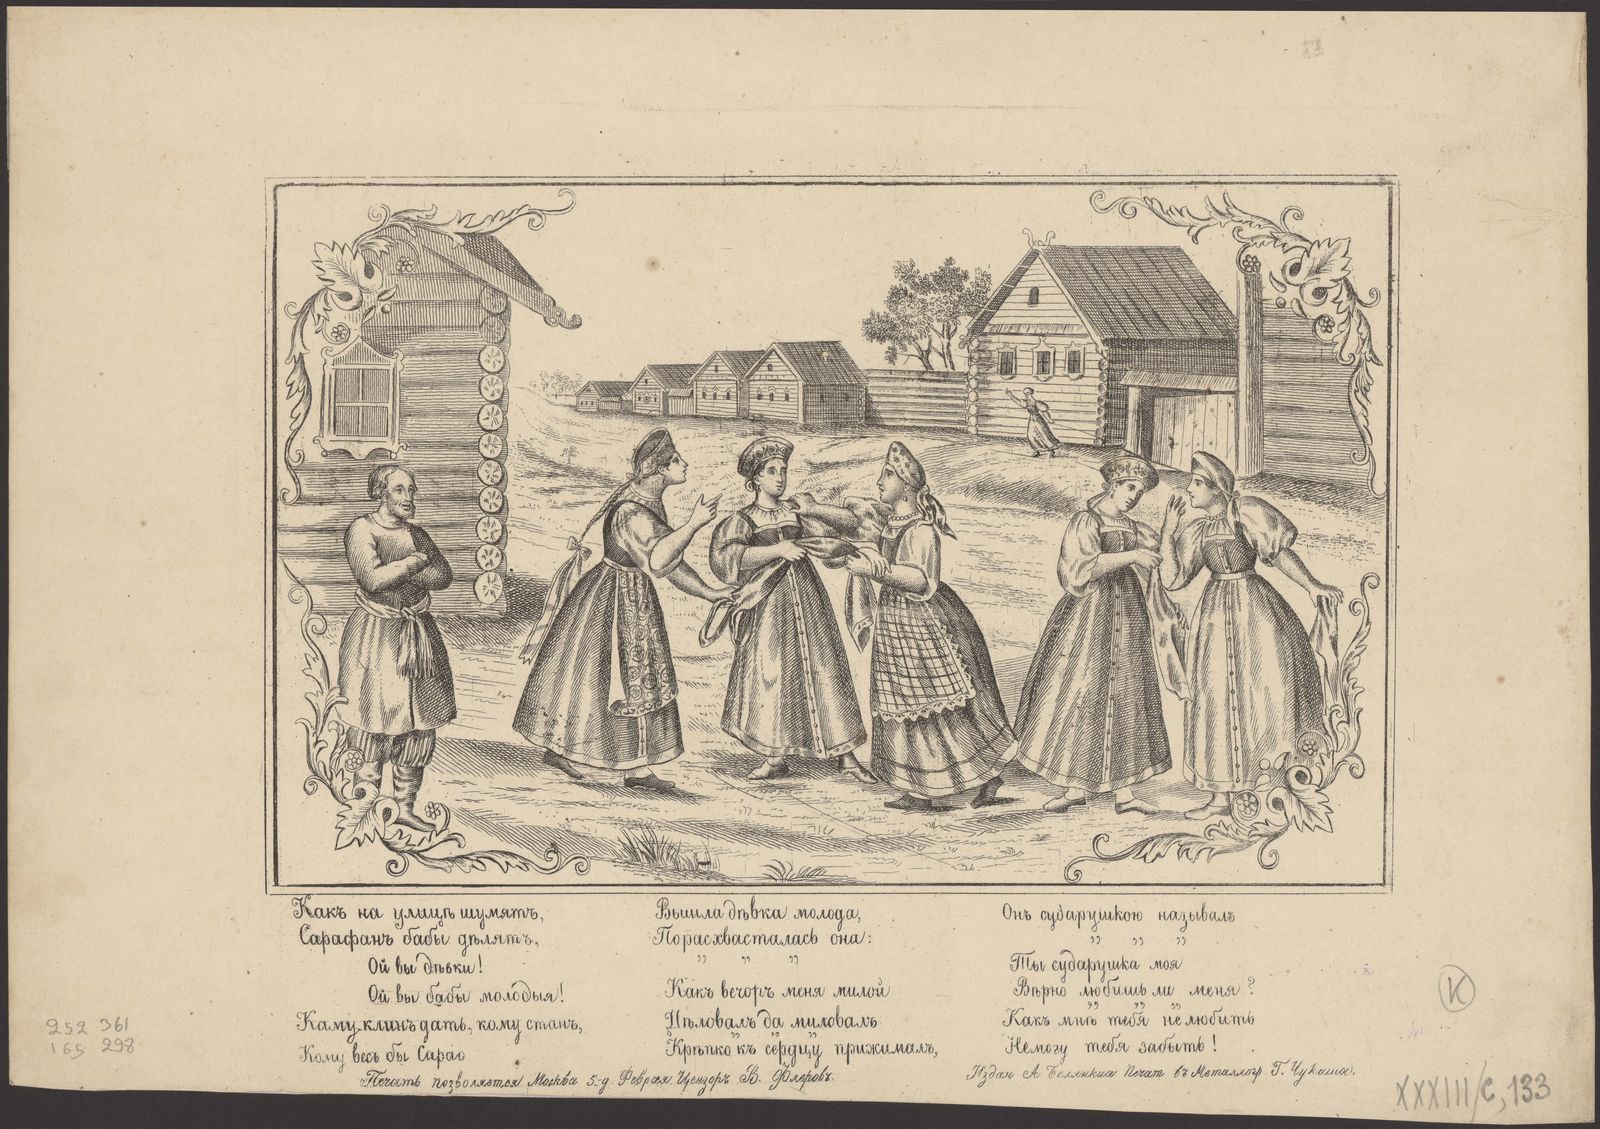 Какъ на улицѣ шумятъ,
Сарафанъ бабы дѣлятъ,
Ой вы дѣвки!
Ой вы бабы молодыя!
Каму клинъ дать, кому станъ,
Кому весь бы Сараф
Вышла дѣвка молода,
Порасхвасталась она:
" " "
Какъ вечоръ меня милой
Цѣловалъ да миловалъ
" " "
Крѣпко къ сердцу прижималъ,
Онъ сударушкою называлъ
" " "
Ты сударушка моя
Вѣрно любишь ли меня?
" " "
Какъ мнѣ тебя не любить
Немогу тебя забыть!
Печать позволяется Москва 5-д. Февраля Цензоръ В. Флеровъ.
Издан А Белянкина Печат въ Металлогр Г. Чуксина.
252 361
165 298
K
XXXIII/C, 133